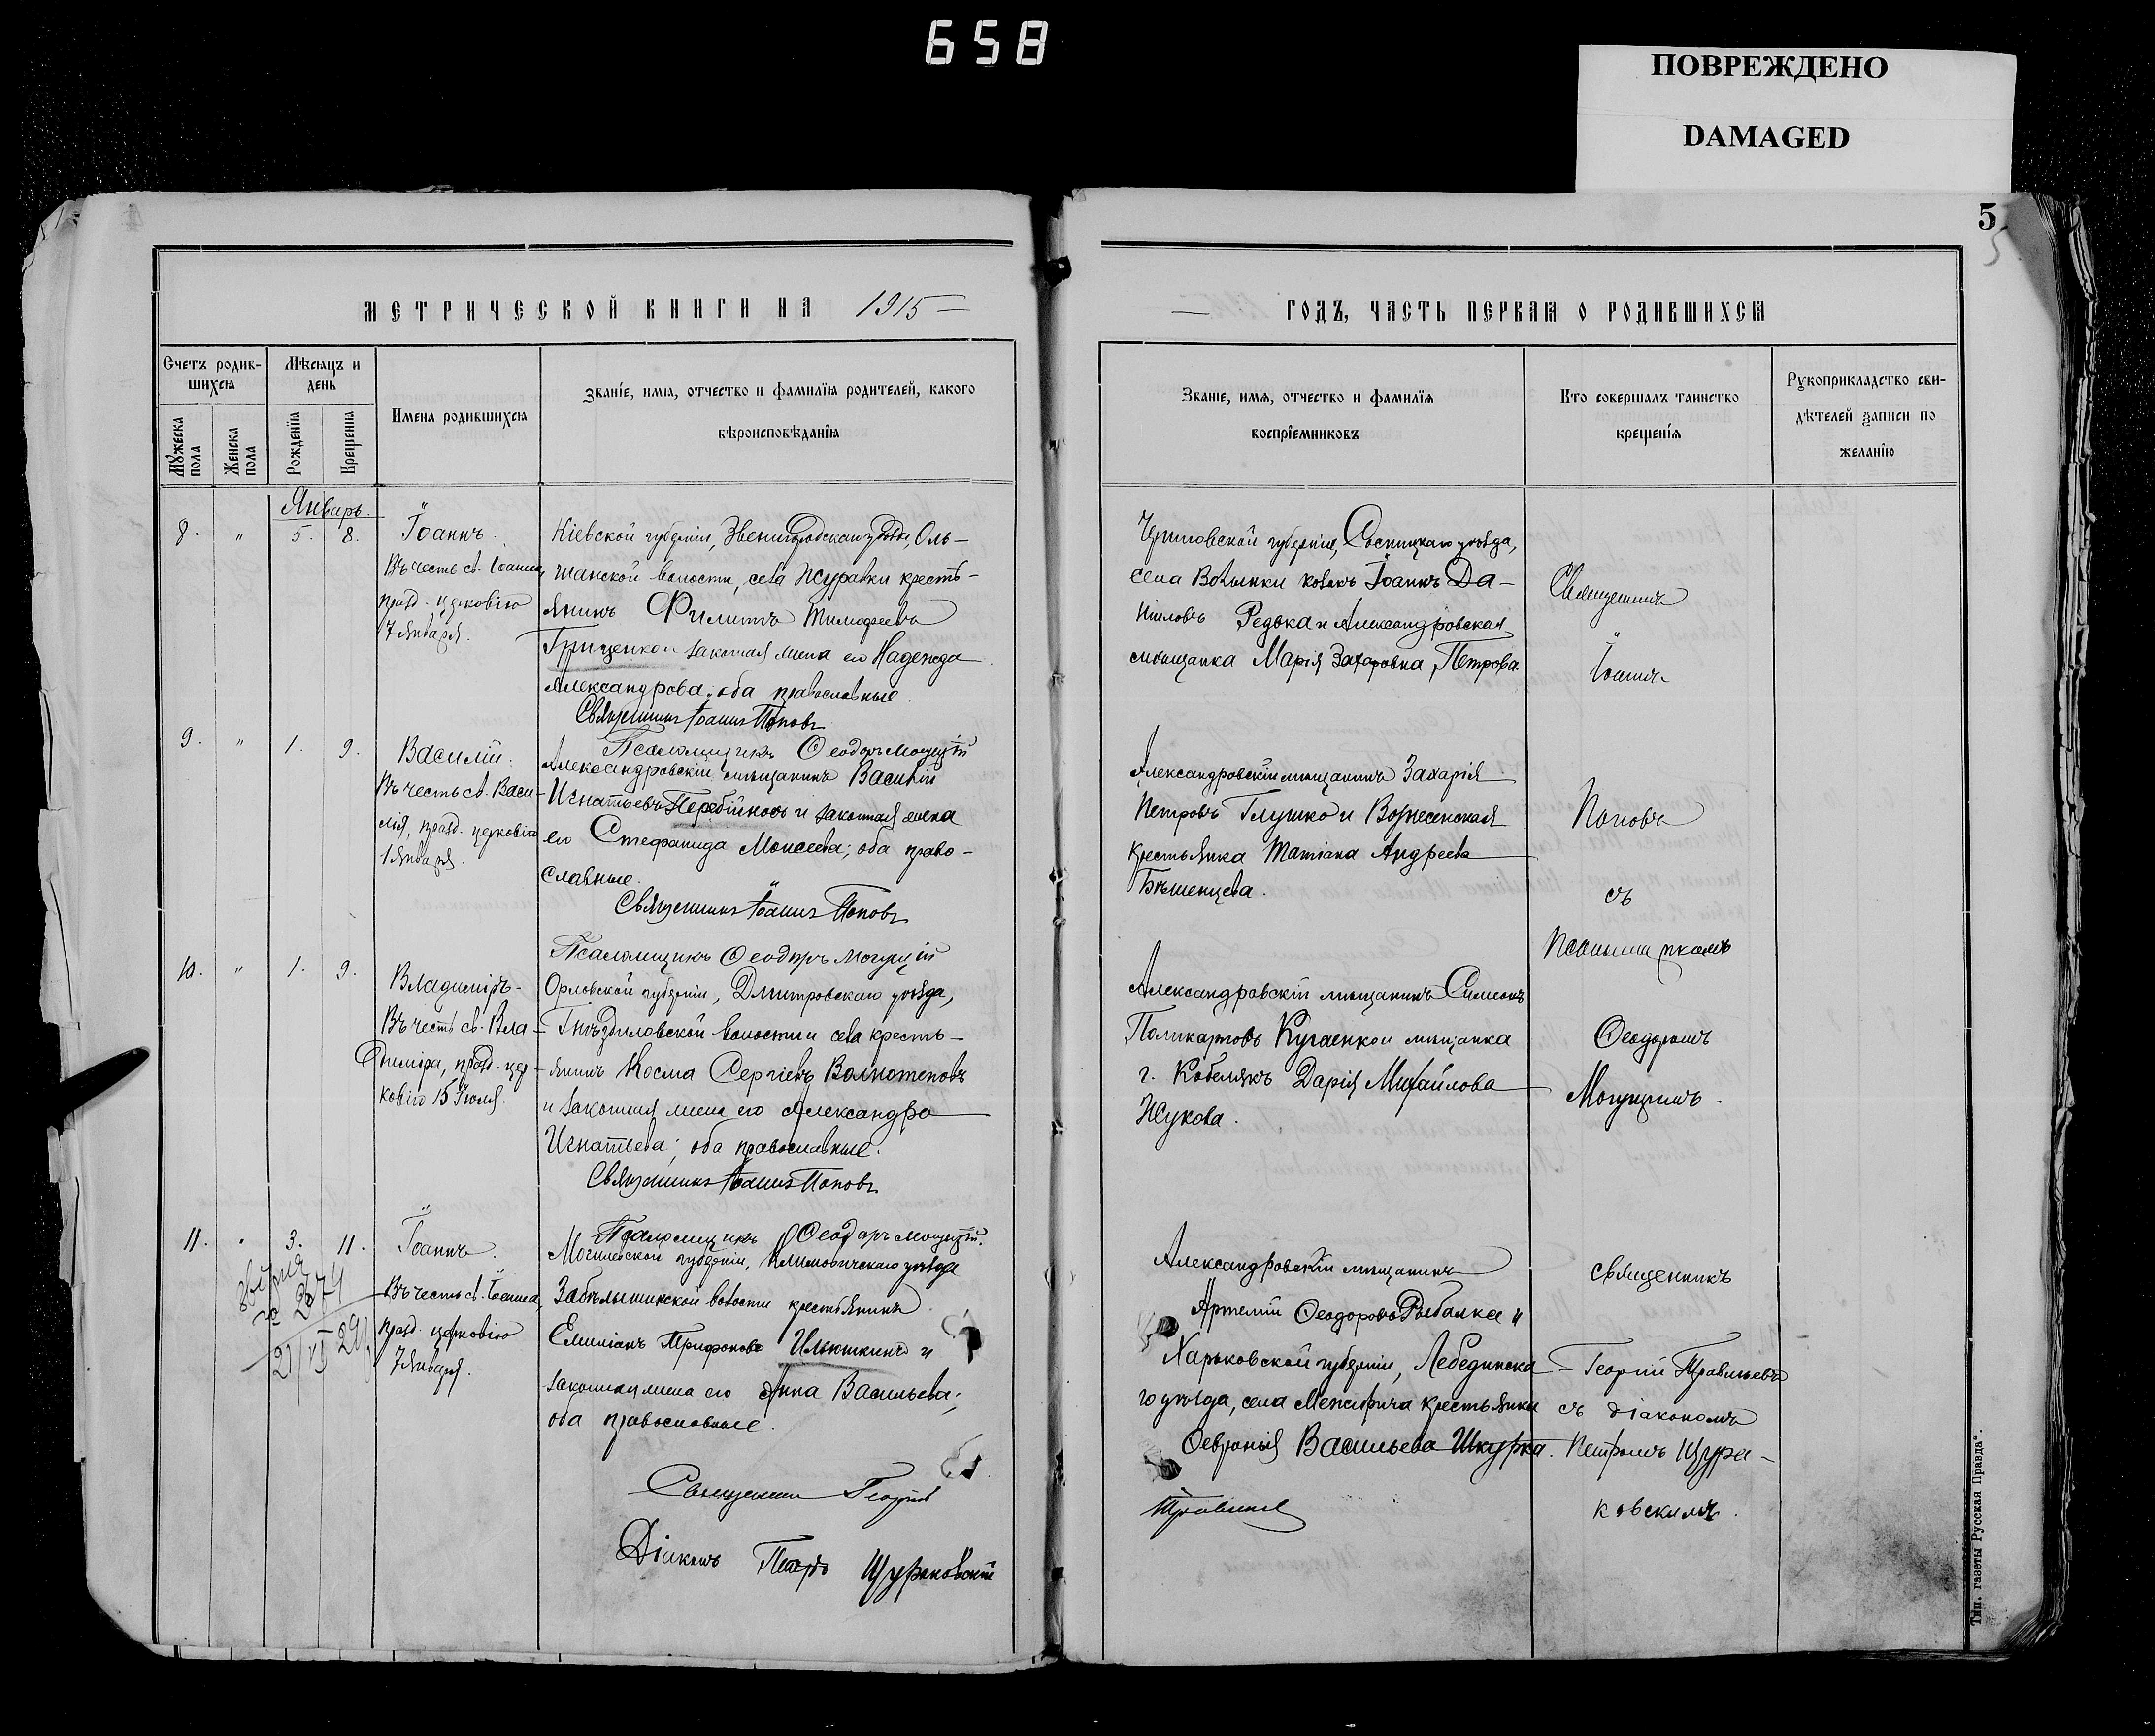 658
ПОВРЕЖДЕНО
DAMAGED
5
МЕТРИЧЕСКОЙ КНИГИ НА 1915
ГОДЪ, ЧАСТЬ ПЕРВАЯ О РОДИВШИХСЯ
Счетъ родив-
шихся
Мужеска пола
Женска пола
Мѣсяцъ и
день
Рожденія
Крещенія
Имена родившихся
Званіе, имя, отчество и фамилія родителей, какого
вѣроисповѣданія
Званіе, имя, отчество и фамилія
воспріемниковъ
Кто совершалъ таинство
крещенія
Рукоприкладство сви-
дѣтелей записи по
желанію
Январь.
8. " 5. 8.
Іоаннъ.
Въ честь св. Іоанна,
празд. церковію
7 января.
Кіевской губерніи, Звенигородскаго уѣзда, Оль-
шанской волости, села Журавки кресть-
янинъ Филиппъ Тимофеевъ
Грищенко и законная жена его Надежда
Александрова; оба православные.
Священникъ Іоаннъ Поповъ
Псаломщикъ Ѳеодоръ Могущій
Черниговской губерніи, Сосницкаго уѣзда,
села Волынки козакъ Іоаннъ Да-
ниловъ Редька и Александровская
мѣщанка Марія Захаровна Петрова.
Священникъ
Іоаннъ
9. " 1. 9.
Василій.
Въ честь св. Васи-
лія, празд. церковію
1 января.
Александровскій мѣщанинъ Василій
Игнатьевъ Перебійносъ и законная жена
его Стефанида Моисеева; оба право-
славные.
Священникъ Іоаннъ Поповъ
Псаломщикъ Ѳеодоръ Могущій
Александровскій мѣщанинъ Захарія
Петровъ Глушко и Вознесенская
крестьянка Татіана Андреева
Бѣшенцева.
Поповъ
съ
псаломщикомъ
10. " 1. 9.
Владиміръ.
Въ честь св. Вла-
диміра, празд. цер-
ковію 15 Іюля.
Орловской губерніи, Дмитровскаго уѣзда,
Гнѣздиловской волости и села кресть-
янинъ Косма Сергіевъ
и законная жена его Александра
Игнатьева; оба православные.
Священникъ Іоаннъ Поповъ
Псаломщикъ Ѳеодоръ Могущій.
Александровскій мѣщанинъ Симеонъ
Поликарповъ и мѣщанка
г. Кобелякъ Дарія Михайлова
Жукова.
Ѳеодоромъ
Могущимъ.
11. " 3. 11.
Іоаннъ.
Въ честь св. Іоанна,
празд. церковію
7 января.
Могилевской губерніи, Климовичскаго уѣзда
Забѣлышинской волости крестьянинъ
Емиліанъ Трифоновъ Илюшкинъ и
законная жена его Анна Васильева;
оба православные.
Священникъ Георгій
Діаконъ Петръ Щураковскій
Александровскій мѣщанинъ
Артемій Ѳеодоровъ Рыбалка и
Харьковской губерніи, Лебединска-
го уѣзда, села Межирича крестьянка
Февронія Васильева Шкурка.
Священникъ
Георгій
съ діакономъ
Петромъ Щура-
ковскимъ.
Тип. газеты Русская Правда".